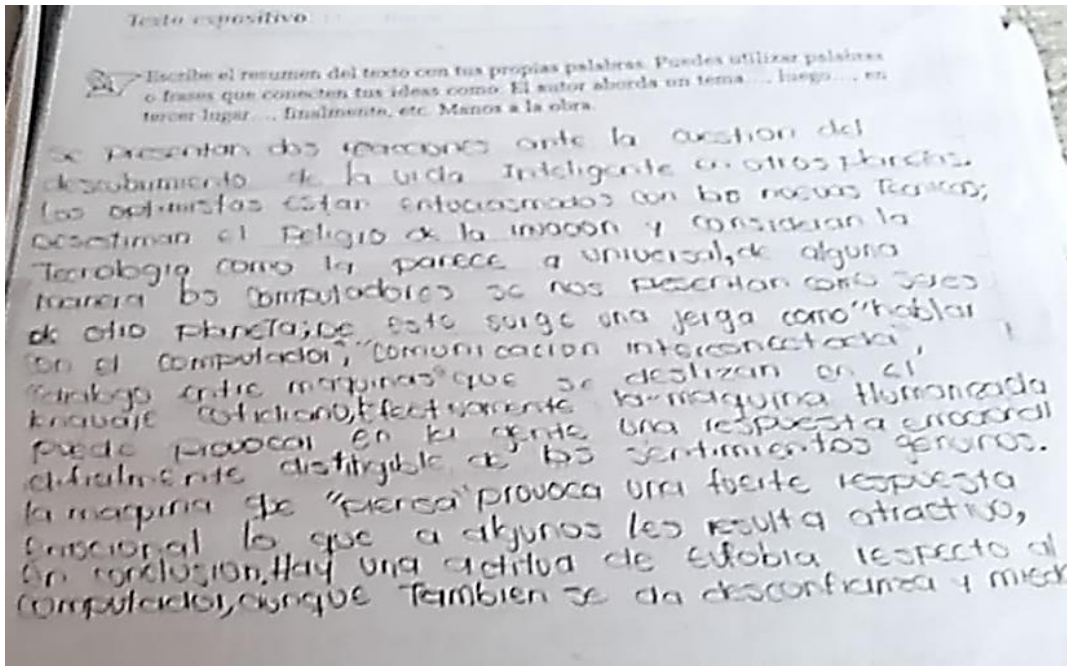 Texto expositivo
Escribe el resumen del texto con tus propias palabras. Puedes utilizar palabras
o frases que conecten tus ideas como: El autor aborda un tema..., luego..., en
tercer lugar..., finalmente, etc. Manos a la obra.
se presentan dos reacciones ante la cuestion del
descubrimiento de la vida Inteligente en otros planetas.
los optimistas estan entuciasmados con las nuevas Tecnicas;
desestiman el Peligro de la invacion y consideran la
Tecnologia como la parece a universal, de alguna
manera los computadores se nos presentan como seres
de otro planeta; De esto surge una jerga como "hablar
con el computador", "comunicacion interconectada",
"dialogo entre maquinas" que se deslizan en el
lenguaje cotidiano, Efectivamente la maquina Humanizada
puede provocar en la gente una respuesta emocional
dificilmente distinguible de los sentimientos genuinos.
la maquina que "piensa" provoca una fuerte respuesta
emocional lo que a algunos les resulta atractivo,
En conclusion, Hay una actitud de eufobia respecto al
computador, aunque Tambien se da desconfianza y miedo